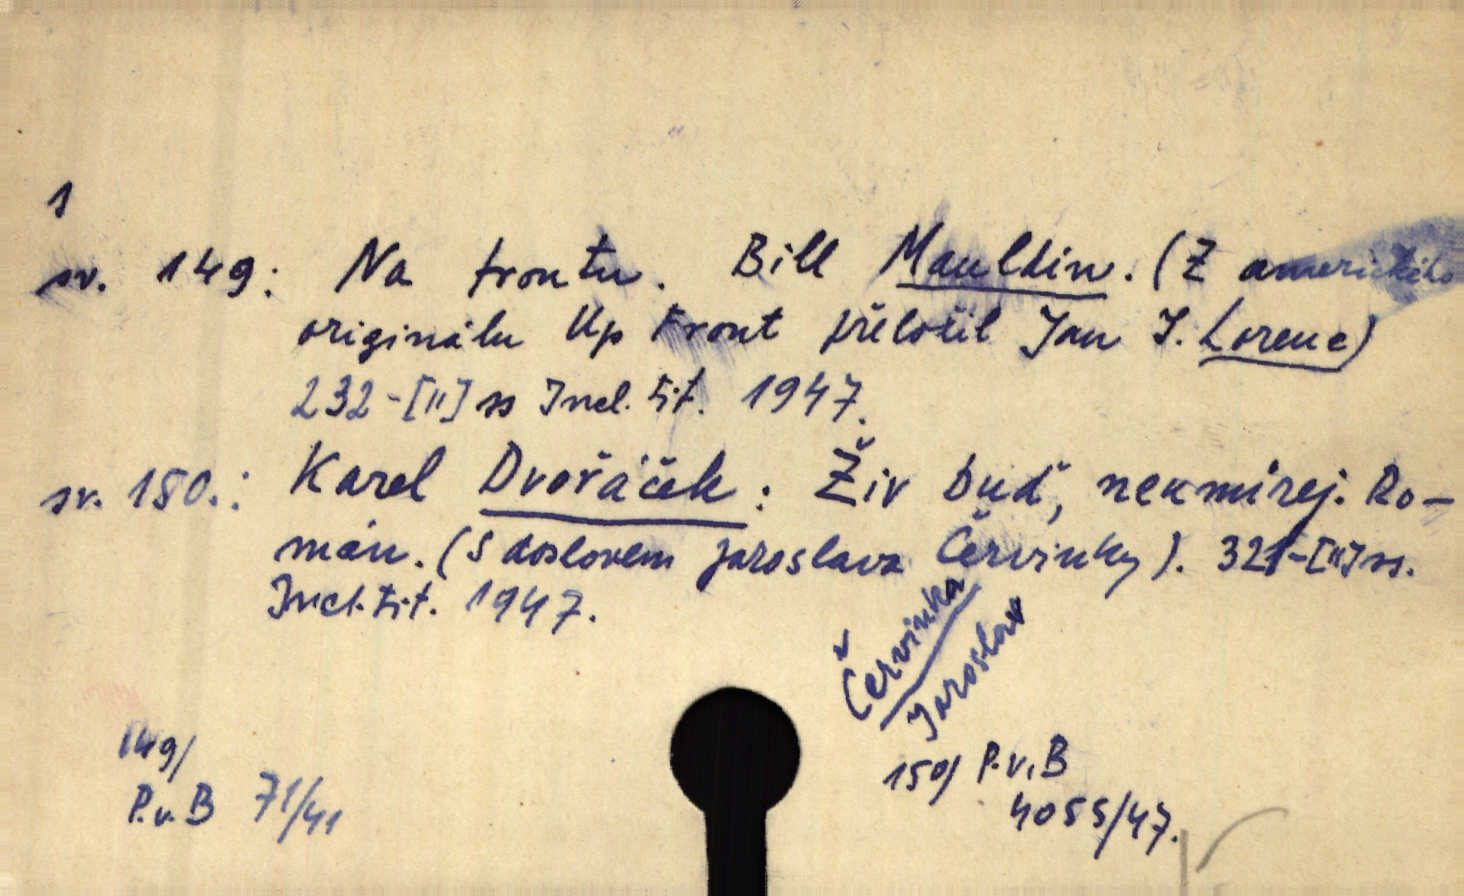 1
sv. 149: Na frontu. Bill Mauldin. (Z amerického
originálu Up Front přeložil Jan J. Lorenc)
232-[II] ss Incl. tit. 1947.
sv. 150.: Karel Dvořáček: Živ buď, neumírej. Ro-
mán. (S doslovem Jaroslava Červinky). 321-[II] ss.
Incl. tit. 1947.
Červinka
Jaroslav
149/
P.v.B 71/41
150/ P.v.B
4055/47.